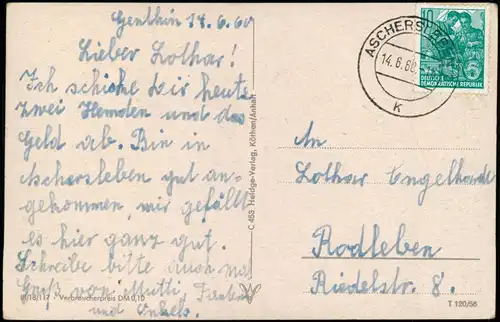 Genthin 14.6.60
Lieber Lothar!
Ich schicke Dir heute
zwei Hemden und das
Geld ab. Bin in
Aschersleben gut an-
gekommen, mir gefällt
es hier ganz gut.
Schreibe bitte auch mal
Gruß von Mutti,
und Onkel.
III/18/117 Verbraucherpreis DM 0,10
C 453 Heldge-Verlag, Köthen/Anhalt
10
DEUTSCHE
DEMOKRATISCHE REPUBLIK
ASCHERSLEBEN
14.6.60
K
An
Lothar Engelhardt
Rodleben
Riedelstr. 8.
T 120/56